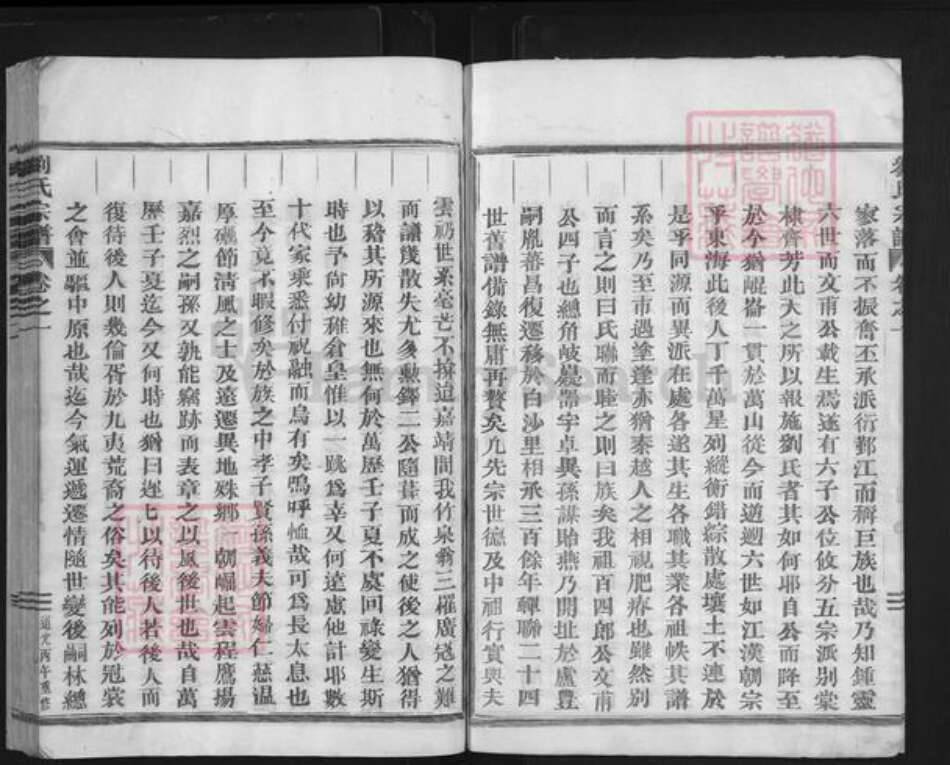 家落而不振奮丕承派衍鄞江而稱巨族也哉乃知鍾靈
六世而文甫公載生焉遂有六子公位攸分五宗派別棠
棣齊芳此天之所以報施劉氏者其如何耶自公而降至
於今猶崐崙一貫於萬山從今而遡廻六世如江漢朝宗
乎東海此後人丁千萬星列縱衡錯綜散處壤土不連於
是乎同源而異派在處各遂其生各職其業各祖帙其譜
系矣乃至市遇塗逢亦猶秦越人之相視肥瘠也雖然別
而言之則曰氏聯而睦之則曰族矣我祖百四郎公文甫
公四子也總角岐嶷器宇卓異孫謀貽燕乃開址於盧豐
嗣胤蕃昌復遷移於白沙里相承三百餘年聯二十四
世舊譜備錄無庸再贅矣凡先宗世德及中祖行實與夫
雲礽世系毫芒不揜迨嘉靖間我竹泉翁三罹廣寇之難
而譜幾散失尤多勳鐸二公隨葺而成之使後之人猶得
以稽其所源來也無何於萬歷壬子夏不虞回祿變生斯
時也予尚幼稚倉皇惟以一跳爲幸又何遠慮他計耶數
十代家乘悉付祝融而烏有矣嗚呼恤哉可爲長太息也
至今竟不暇修矣於族之中孝子賢孫義夫節婦仁慈温
厚礪節清風之士及遠遷異地殊鄉一朝崛起雲程鷹揚
嘉烈之嗣孫又孰能竊跡而表章之以風後世也哉自萬
歷壬子夏迄今又何時也猶曰遲匕以待後人若後人而
復待後人則幾倫胥於九夷荒裔之俗矣其能列於冠裳
之會並驅中原也哉迄今氣運遞遷情隨世變後嗣林總
劉氏宗譜
卷之一
道光丙午重修